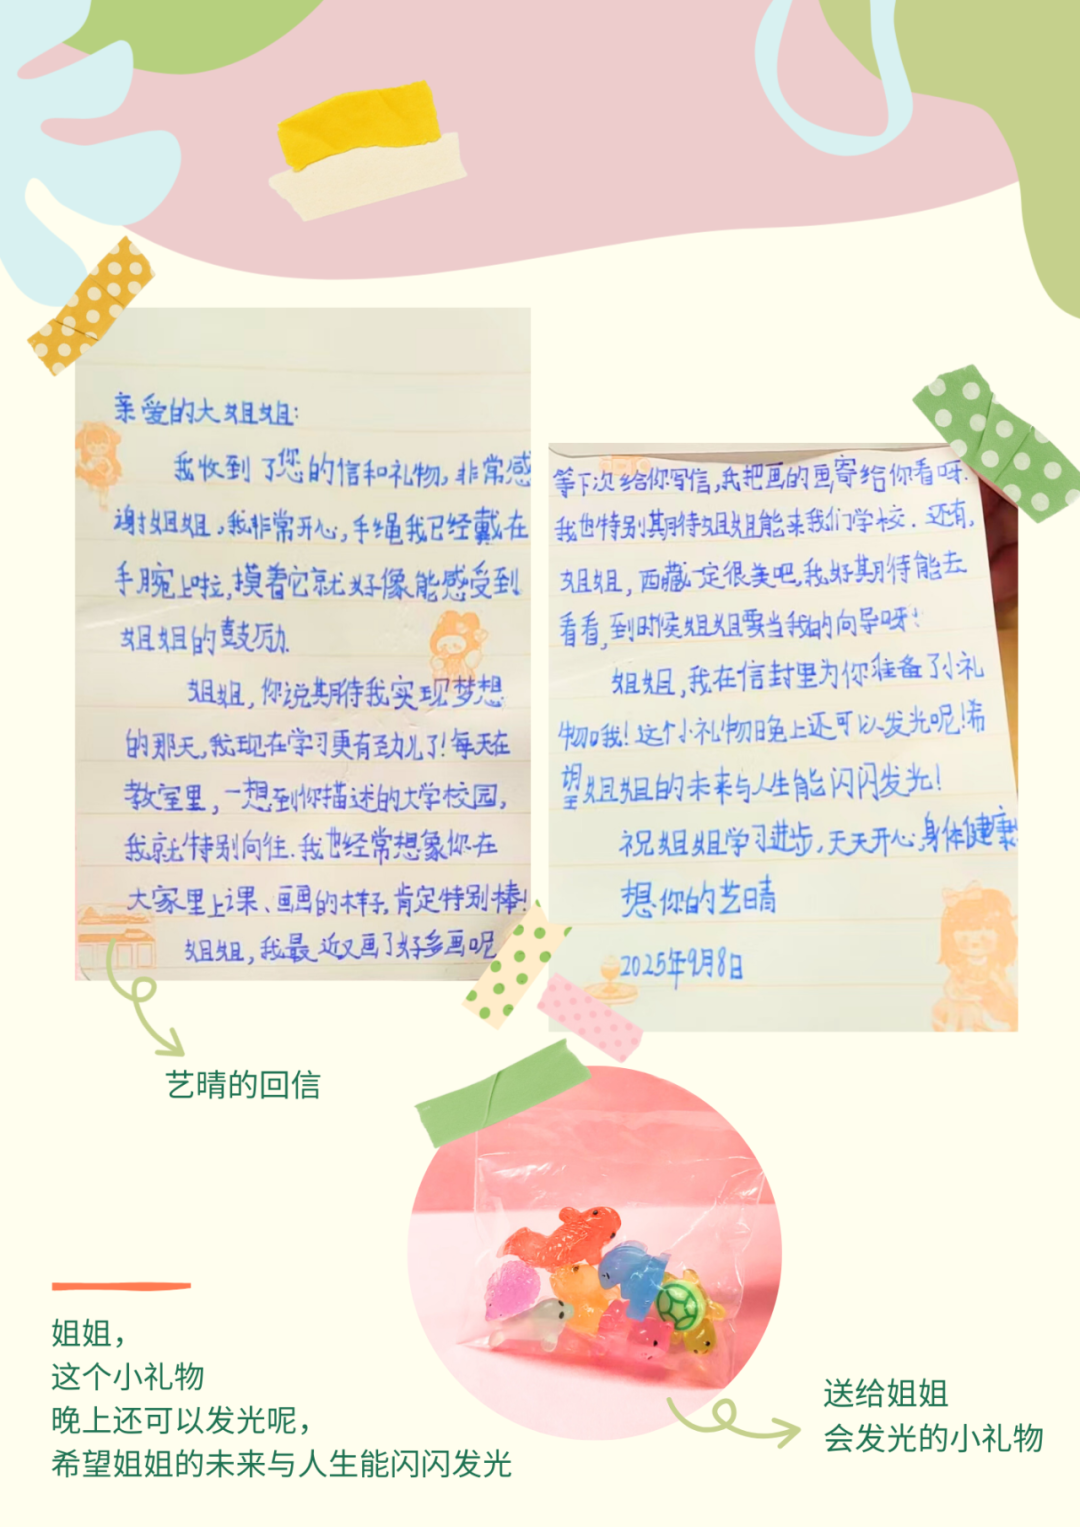 亲爱的大姐姐:
我收到了您的信和礼物,非常感
谢姐姐,我非常开心,手绳我已经戴在
手腕上啦,摸着它就好像能感受到
姐姐的鼓励.
姐姐,你说期待我实现梦想
的那天,我现在学习更有劲儿了!每天在
教室里,一想到你描述的大学校园,
我就特别向往.我也经常想象你在
大家里上课、画画的样子,肯定特别棒!
姐姐,我最近又画了好多画呢
等下次给你写信,我把画的画寄给你看呀.
我也特别期待姐姐能来我们学校.还有,
姐姐,西藏一定很美吧,我好期待能去
看看,到时候姐姐要当我的向导呀!
姐姐,我在信封里为你准备了小礼
物哦!这个小礼物晚上还可以发光呢!希
望姐姐的未来与人生能闪闪发光!
祝姐姐学习进步,天天开心,身体健康
想你的艺晴
2025年9月8日
艺晴的回信
姐姐，
这个小礼物
晚上还可以发光呢，
希望姐姐的未来与人生能闪闪发光
送给姐姐
会发光的小礼物